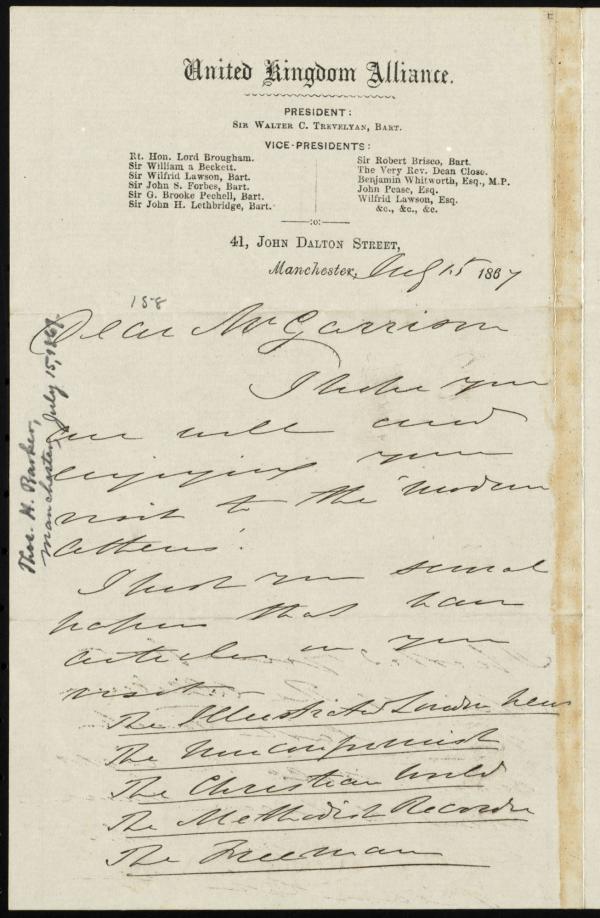 United Kingdom Alliance.
PRESIDENT:
SIR WALTER C. TREVELYAN, BART.
VICE-PRESIDENTS:
Rt. Hon. Lord Brougham.
Sir William a Beckett.
Sir Wilfrid Lawson, Bart.
Sir John S. Forbes, Bart.
Sir G. Brooke Pechell, Bart.
Sir John H. Lethbridge, Bart.
Sir Robert Brisco, Bart.
The Very Rev. Dean Close.
Benjamin Whitworth, Esq., M.P.
John Pease, Esq.
Wilfrid Lawson, Esq.
&c., &c., &c.
41, JOHN DALTON STREET,
Manchester, July 15 1867
158
Dear Mr Garrison
I hope you
are well and
enjoying your
visit to the "modern
Athens".
I post you several
papers that have
articles on your
visit:-
The Illustrated London News
The Nonconformist
The Christian World
The Methodist Recorder
The Freeman
Thos. H. Barker,
Manchester, July 15, 1867.